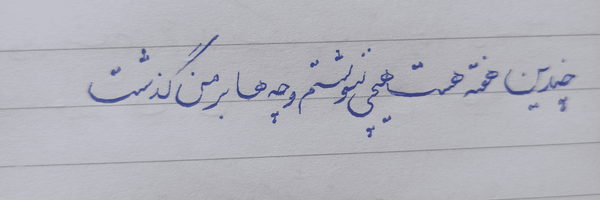 چندین هفته هست هیچی ننوشتم و چه ها بر من گذشت